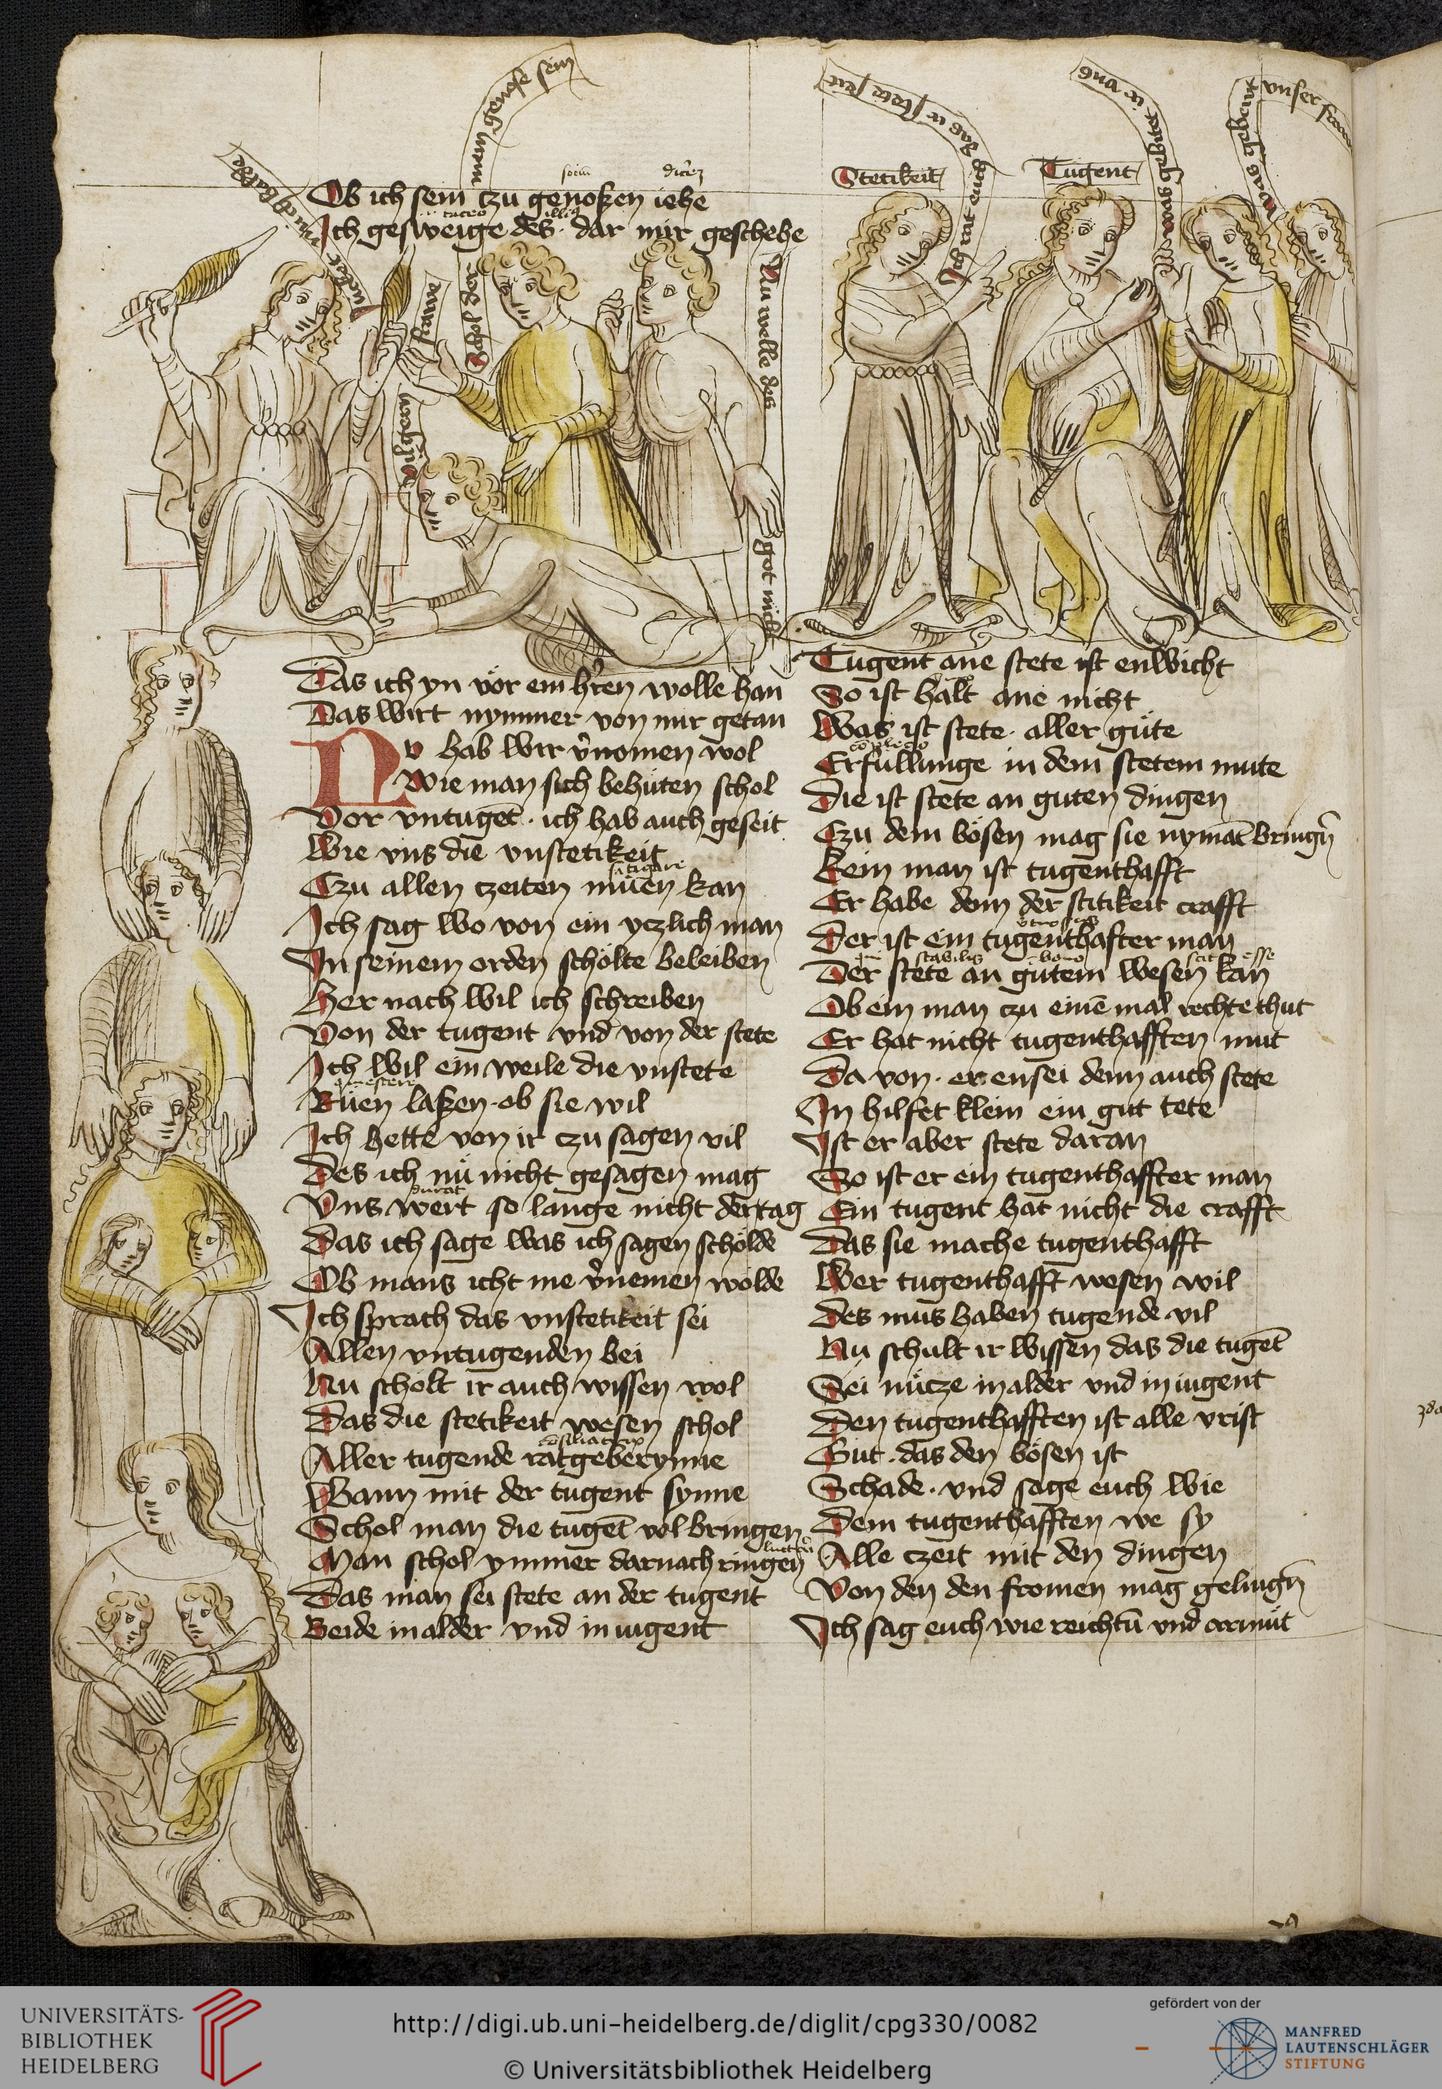 mein genose sein
Ich rat euch das ir stete seit
was gebitet ir vns
was gebeut vnser
Stetikeit
Tugent
socium
Ob ich sein czu genoßen iehe
taceo illius
Ich gesweige des · dar mir geschehe
frawe
schol der
Nu welle des
got nicht
Das ich yn vor ein hren wolle han
Das wirt nymmer von mir getan
Nu hab wir v̉nomen wol
Wie man sich behuten schol
Vor vntuget̄ · ich hab auch geseit
Wie vns die vnstetikeit
fatigare
Czu allen czeiten muen kan
Ich sag wo von ein yczlich man
In seinem orden scholte beleiben
Her nach wil ich schreiben
Von der tugent vnd von der stete
Ich wil ein weile die vnstete
quiescere
Ruen laßen · ob sie wil
Ich hette von ir czu sagen vil
Des ich nu nicht gesagen mag
durat
Vns wert so lange nicht der tag
Das ich sage was ich sagen scholde
Ob mans icht me v̉nemen wolde
Ich sprach das vnstetikeit sei
Allen vntugenden bei
Nu scholt ir auch wissen wol
Das die stetikeit wesen schol
Aller tugende ratgeberynne
Wann mit der tugent synne
Schol man die tuget̄ vol bringen
Man schol ymmer darnach ringen
Das man sei stete an der tugent
Beide in alder vnd in iugent
Tugent ane stete ist enwicht
So ist halt ane nicht
Was ist stete · aller gute
Erfullunge in dem stetem mute
Die ist stete an guten dingen
Czu dem bösen mag sie nymāt bringn̄
Kein man ist tugenthafft
Er habe denn der stitikeit crafft
Der ist ein tugenthafter man
qui stabilis bono scit esse
Der stete an gutem wesen kan
Ob ein man czu einē mal rechte thut
Er hat nicht tugenthafften mut
Da von · er ensei denn auch stete
In hilfet klein ein gut tete
Ist er aber stete daran
So ist er ein tugenthaffter man
Ein tugent hat nicht die crafft
Das sie mache tugenthafft
Wer tugenthafft wesen wil
Des mus haben tugende vil
Nu schult ir wissen das die tuget̄
Sei nucze in alder vnd in iugent
Den tugenthafften ist alle vrist
Gut · das den bösen ist
Schade · vnd sage euch wie
Dem tugenthafften we sy
Alle czeit mit den dingen
Von den den fromen mag gelingn̄
Ich sag euch wie reichtū vnd armut
UNIVERSITÄTS-
BIBLIOTHEK
HEIDELBERG
http://digi.ub.uni-heidelberg.de/diglit/cpg330/0082
© Universitätsbibliothek Heidelberg
gefördert von der
MANFRED
LAUTENSCHLÄGER
STIFTUNG